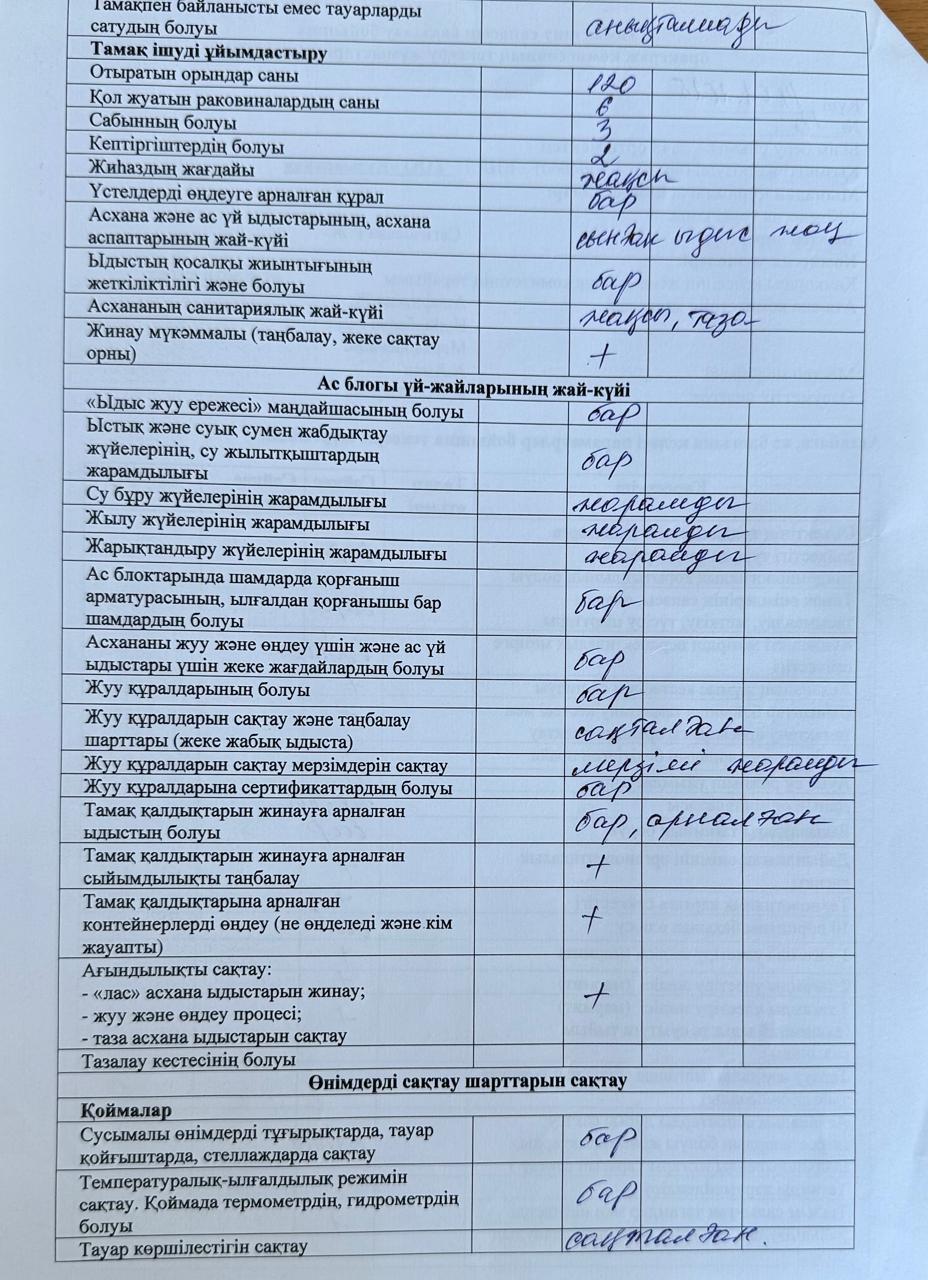 Тамақпен байланысты емес тауарларды
сатудың болуы анықталмады
Тамақ ішуді ұйымдастыру
Отыратын орындар саны 120
Қол жуатын раковиналардың саны 6
Сабынның болуы 3
Кептіргіштердің болуы 2
Жиһаздың жағдайы жақсы
Үстелдерді өңдеуге арналған құрал бар
Асхана және ас үй ыдыстарының, асхана
аспаптарының жай-күйі сынған ыдыс жоқ
Ыдыстың қосалқы жиынтығының
жеткіліктілігі және болуы бар
Асхананың санитариялық жай-күйі жақсы, таза
Жинау мүкәммалы (таңбалау, жеке сақтау
орны) +
Ас блогы үй-жайларының жай-күйі
«Ыдыс жуу ережесі» маңдайшасының болуы бар
Ыстық және суық сумен жабдықтау
жүйелерінің, су жылытқыштардың бар
жарамдылығы
Су бұру жүйелерінің жарамдылығы жарамды
Жылу жүйелерінің жарамдылығы жарамды
Жарықтандыру жүйелерінің жарамдылығы жарамды
Ас блоктарында шамдарда қорғаныш
арматурасының, ылғалдан қорғанышы бар бар
шамдардың болуы
Асхананы жуу және өңдеу үшін және ас үй
ыдыстары үшін жеке жағдайлардың болуы бар
Жуу құралдарының болуы бар
Жуу құралдарын сақтау және таңбалау
шарттары (жеке жабық ыдыста) сақталған
Жуу құралдарын сақтау мерзімдерін сақтау мерзімі жарамды
Жуу құралдарына сертификаттардың болуы бар
Тамақ қалдықтарын жинауға арналған
ыдыстың болуы бар, арналған
Тамақ қалдықтарын жинауға арналған
сыйымдылықты таңбалау +
Тамақ қалдықтарына арналған
контейнерлерді өңдеу (не өңделеді және кім +
жауапты)
Ағындылықты сақтау:
- «лас» асхана ыдыстарын жинау; +
- жуу және өңдеу процесі;
- таза асхана ыдыстарын сақтау
Тазалау кестесінің болуы
Өнімдерді сақтау шарттарын сақтау
Қоймалар
Сусымалы өнімдерді тұғырықтарда, тауар
қойғыштарда, стеллаждарда сақтау бар
Температуралық-ылғалдылық режимін
сақтау. Қоймада термометрдің, гидрометрдің бар
болуы
Тауар көршілестігін сақтау сақталған.